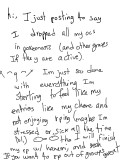 hi, I just posting to say
I dropped all my ocs
in pokemonost (and other groups
if they r active)
I'm just so done
with everything Im
starting to feel like my
entries like my chore and
not enjoying rping maybe Im
stressed or sick all the time
b/c of
my rp w/ haveni, and seek
if you want to rp out of group